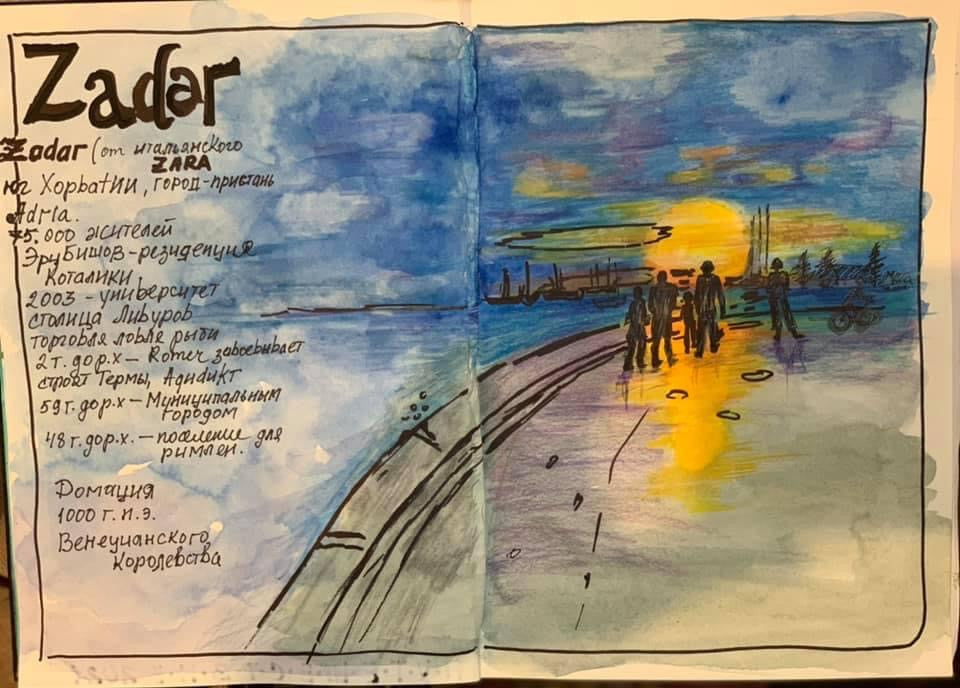 Zadar
Zadar (от итальянского
ZARA
юг Хорватии, город-пристань
Adria.
75.000 жителей
Эрцбишов-резиденция
Каталики.
2003 - университет
столица Либуров
торговля ловля рыби
2 т. до р.х - Romer завоевывает
строят Термы, Агидикт
59 г. до р.х - Муниципальным
городом
48 г. до р.х. - поселение для
римлен.
Домация
1000 г. н.э.
Венецианского
Королевства